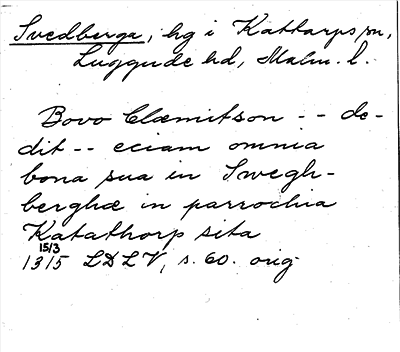 Svedberga, hg i Kattarps sn,
Luggude hd, Malm. l.
Bovo Clæmitson -- de-
dit -- eciam omnia
bona sua in Swegh-
berghæ in parrochia
Katathorp sita
15/3
1315 LDLV, s. 60. orig